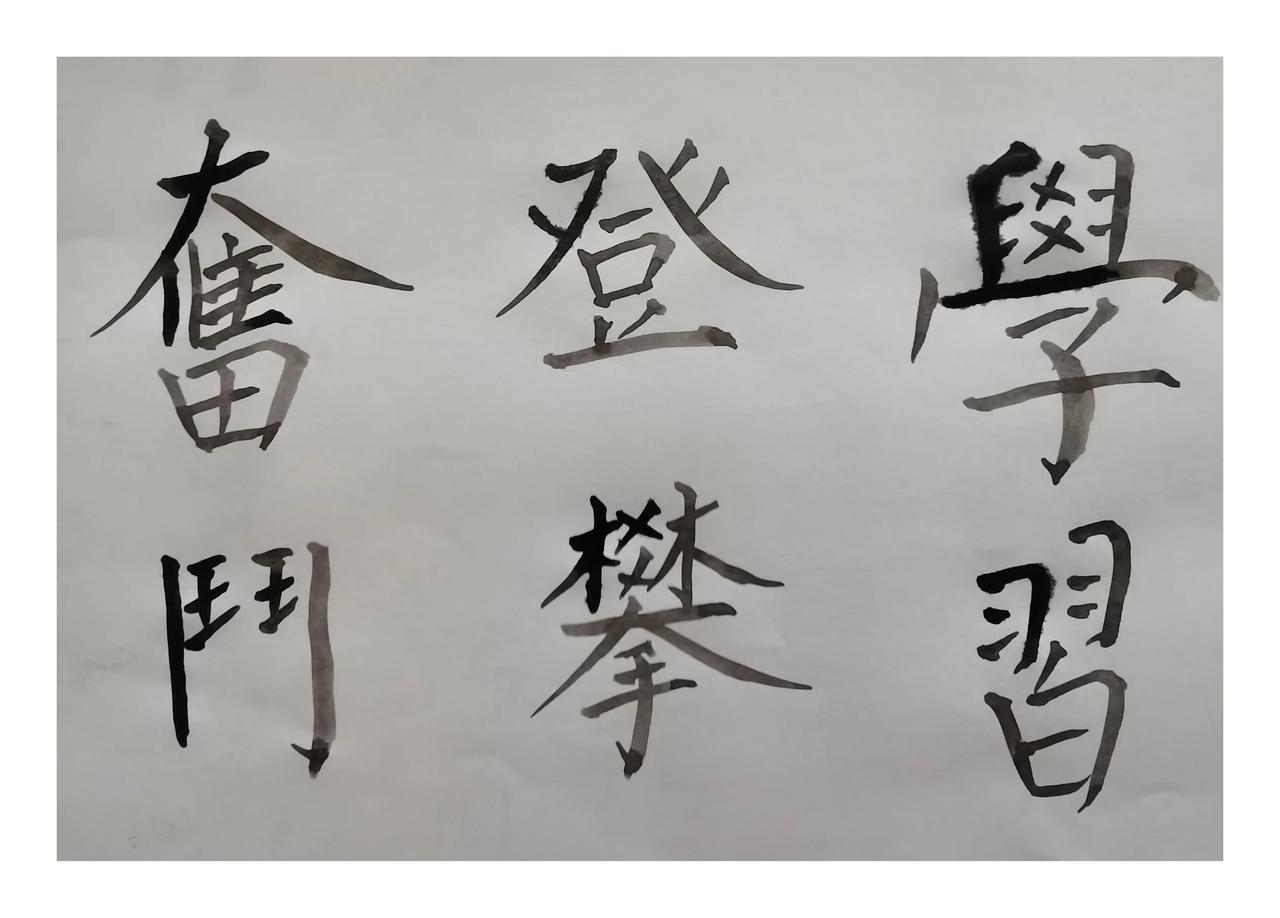 學習
登攀
奮鬥